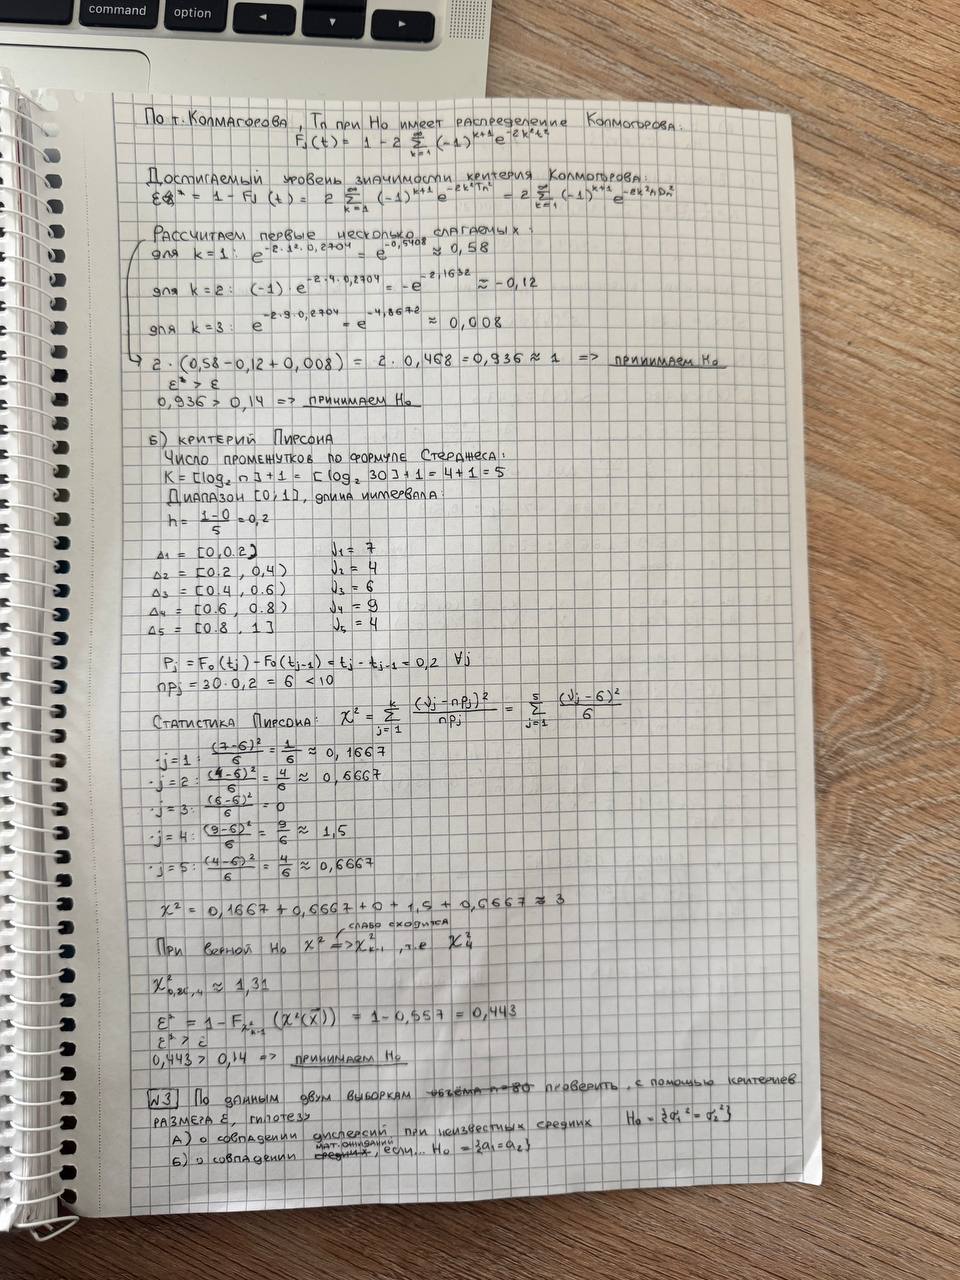 command
option
По т. Колмагорова, Tn при H₀ имеет распределение Колмогорова:
F_J(t) = 1 - 2 ∑_{k=1}^{∞} (-1)^{k+1} e^{-2k²t²}
Достигаемый уровень значимости критерия Колмогорова:
ε* = 1 - F_J(t) = 2 ∑_{k=1}^{∞} (-1)^{k+1} e^{-2k²Tn²} = 2 ∑_{k=1}^{∞} (-1)^{k+1} e^{-2k²nDn²}
Рассчитаем первые несколько слагаемых:
для k=1: e^{-2·1²·0,2704} = e^{-0,5408} ≈ 0,58
для k=2: (-1)·e^{-2·4·0,2704} = -e^{-2,1632} ≈ -0,12
для k=3: e^{-2·9·0,2704} = e^{-4,8672} ≈ 0,008
2·(0,58-0,12+0,008) = 2·0,468 = 0,936 ≈ 1 => принимаем H₀
ε* > ε
0,936 > 0,14 => принимаем H₀
Б) критерий Пирсона
Число промежутков по формуле Стерджеса:
K = [log₂ n]+1 = [log₂ 30]+1 = 4+1 = 5
Диапазон [0,1], длина интервала:
h = (1-0)/5 = 0,2
Δ₁ = [0,0.2) ν₁ = 7
Δ₂ = [0.2, 0,4) ν₂ = 4
Δ₃ = [0.4, 0.6) ν₃ = 6
Δ₄ = [0.6, 0.8) ν₄ = 9
Δ₅ = [0.8, 1] ν₅ = 4
Pj = F₀(tj) - F₀(tj-1) = tj - tj-1 = 0,2 ∀j
npj = 30·0,2 = 6 < 10
Статистика Пирсона: χ² = ∑_{j=1}^{k} (νj - npj)²/npj = ∑_{j=1}^{5} (νj-6)²/6
·j=1: (7-6)²/6 = 1/6 ≈ 0,1667
·j=2: (4-6)²/6 = 4/6 ≈ 0,6667
·j=3: (6-6)²/6 = 0
·j=4: (9-6)²/6 = 9/6 ≈ 1,5
·j=5: (4-6)²/6 = 4/6 ≈ 0,6667
χ² = 0,1667 + 0,6667 + 0 + 1,5 + 0,6667 ≈ 3
слабо сходится
При верной H₀ χ² => χ²_{k-1}, т.е χ²₄
χ²_{0,86,4} ≈ 1,31
ε* = 1 - F_{χ²_{k-1}} (χ²(x⃗)) = 1 - 0,557 = 0,443
ε* > ε
0,443 > 0,14 => принимаем H₀
№3 По данным двум выборкам объёма n=80 проверить, с помощью критериев
размера ε, гипотезу
А) о совпадении дисперсий при неизвестных средних H₀ = {σ₁² = σ₂²}
мат. ожиданий
Б) о совпадении средних, если... H₀ = {a₁ = a₂}